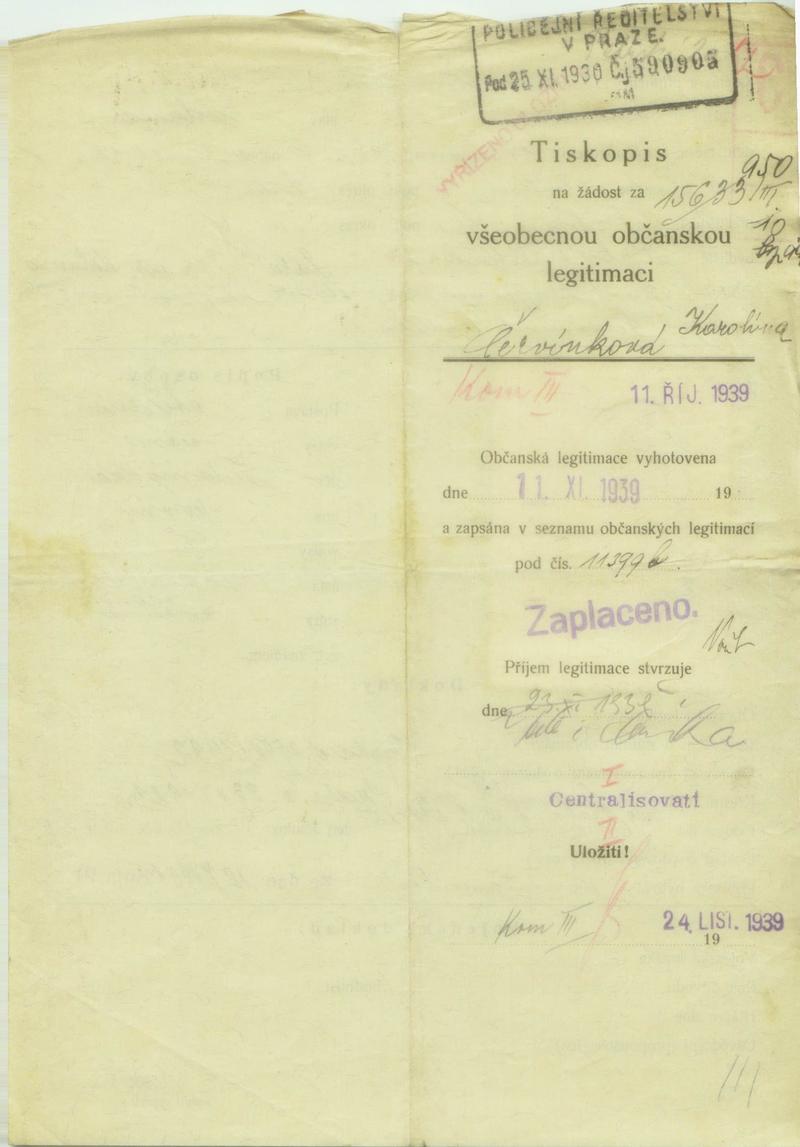 POLICEJNÍ ŘEDITELSTVÍ
V PRAZE.
Pod 25 XI. 1930 Čj 590905
VYŘÍZENO
Tiskopis
950
na žádost za 15633/III
všeobecnou občanskou
legitimaci
Červínková Karolína
Kom III 11. ŘÍJ. 1939
Občanská legitimace vyhotovena
dne 11. XI. 1939 19
a zapsána v seznamu občanských legitimací
pod čís. 11399
Zaplaceno.
Příjem legitimace stvrzuje
dne 23. XI
I
Centralisovati
II
Uložiti!
Kom III 24. LIST. 1939
19